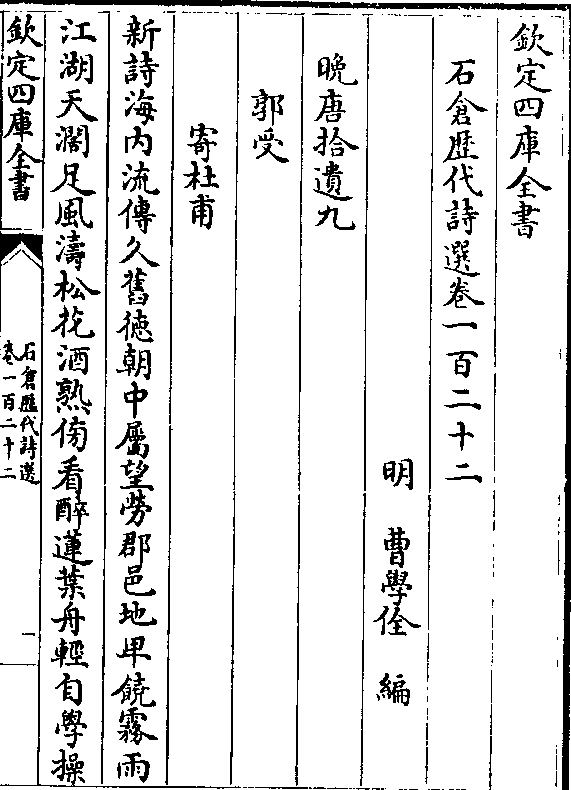 欽定四庫全書
石倉歷代詩選卷一百二十二
明 曹學佺 編
晚唐拾遺九
郭受
寄杜甫
新詩海内流傳久舊徳朝中屬望勞郡邑地卑饒霧雨
江湖天濶足風濤松花酒熟傍看醉蓮葉舟輕自學操
欽定四庫全書
石倉歷代詩選
卷一百二十二
一